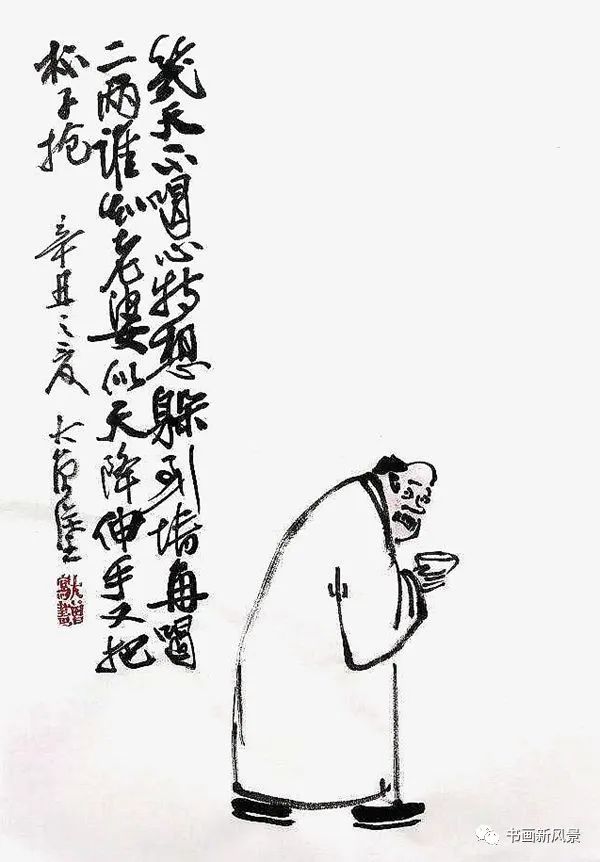 幾天不喝心特想躲到墙角喝
二两谁知老婆似天降伸手又把
杯子抢 辛丑之夏 大曾
书画新风景